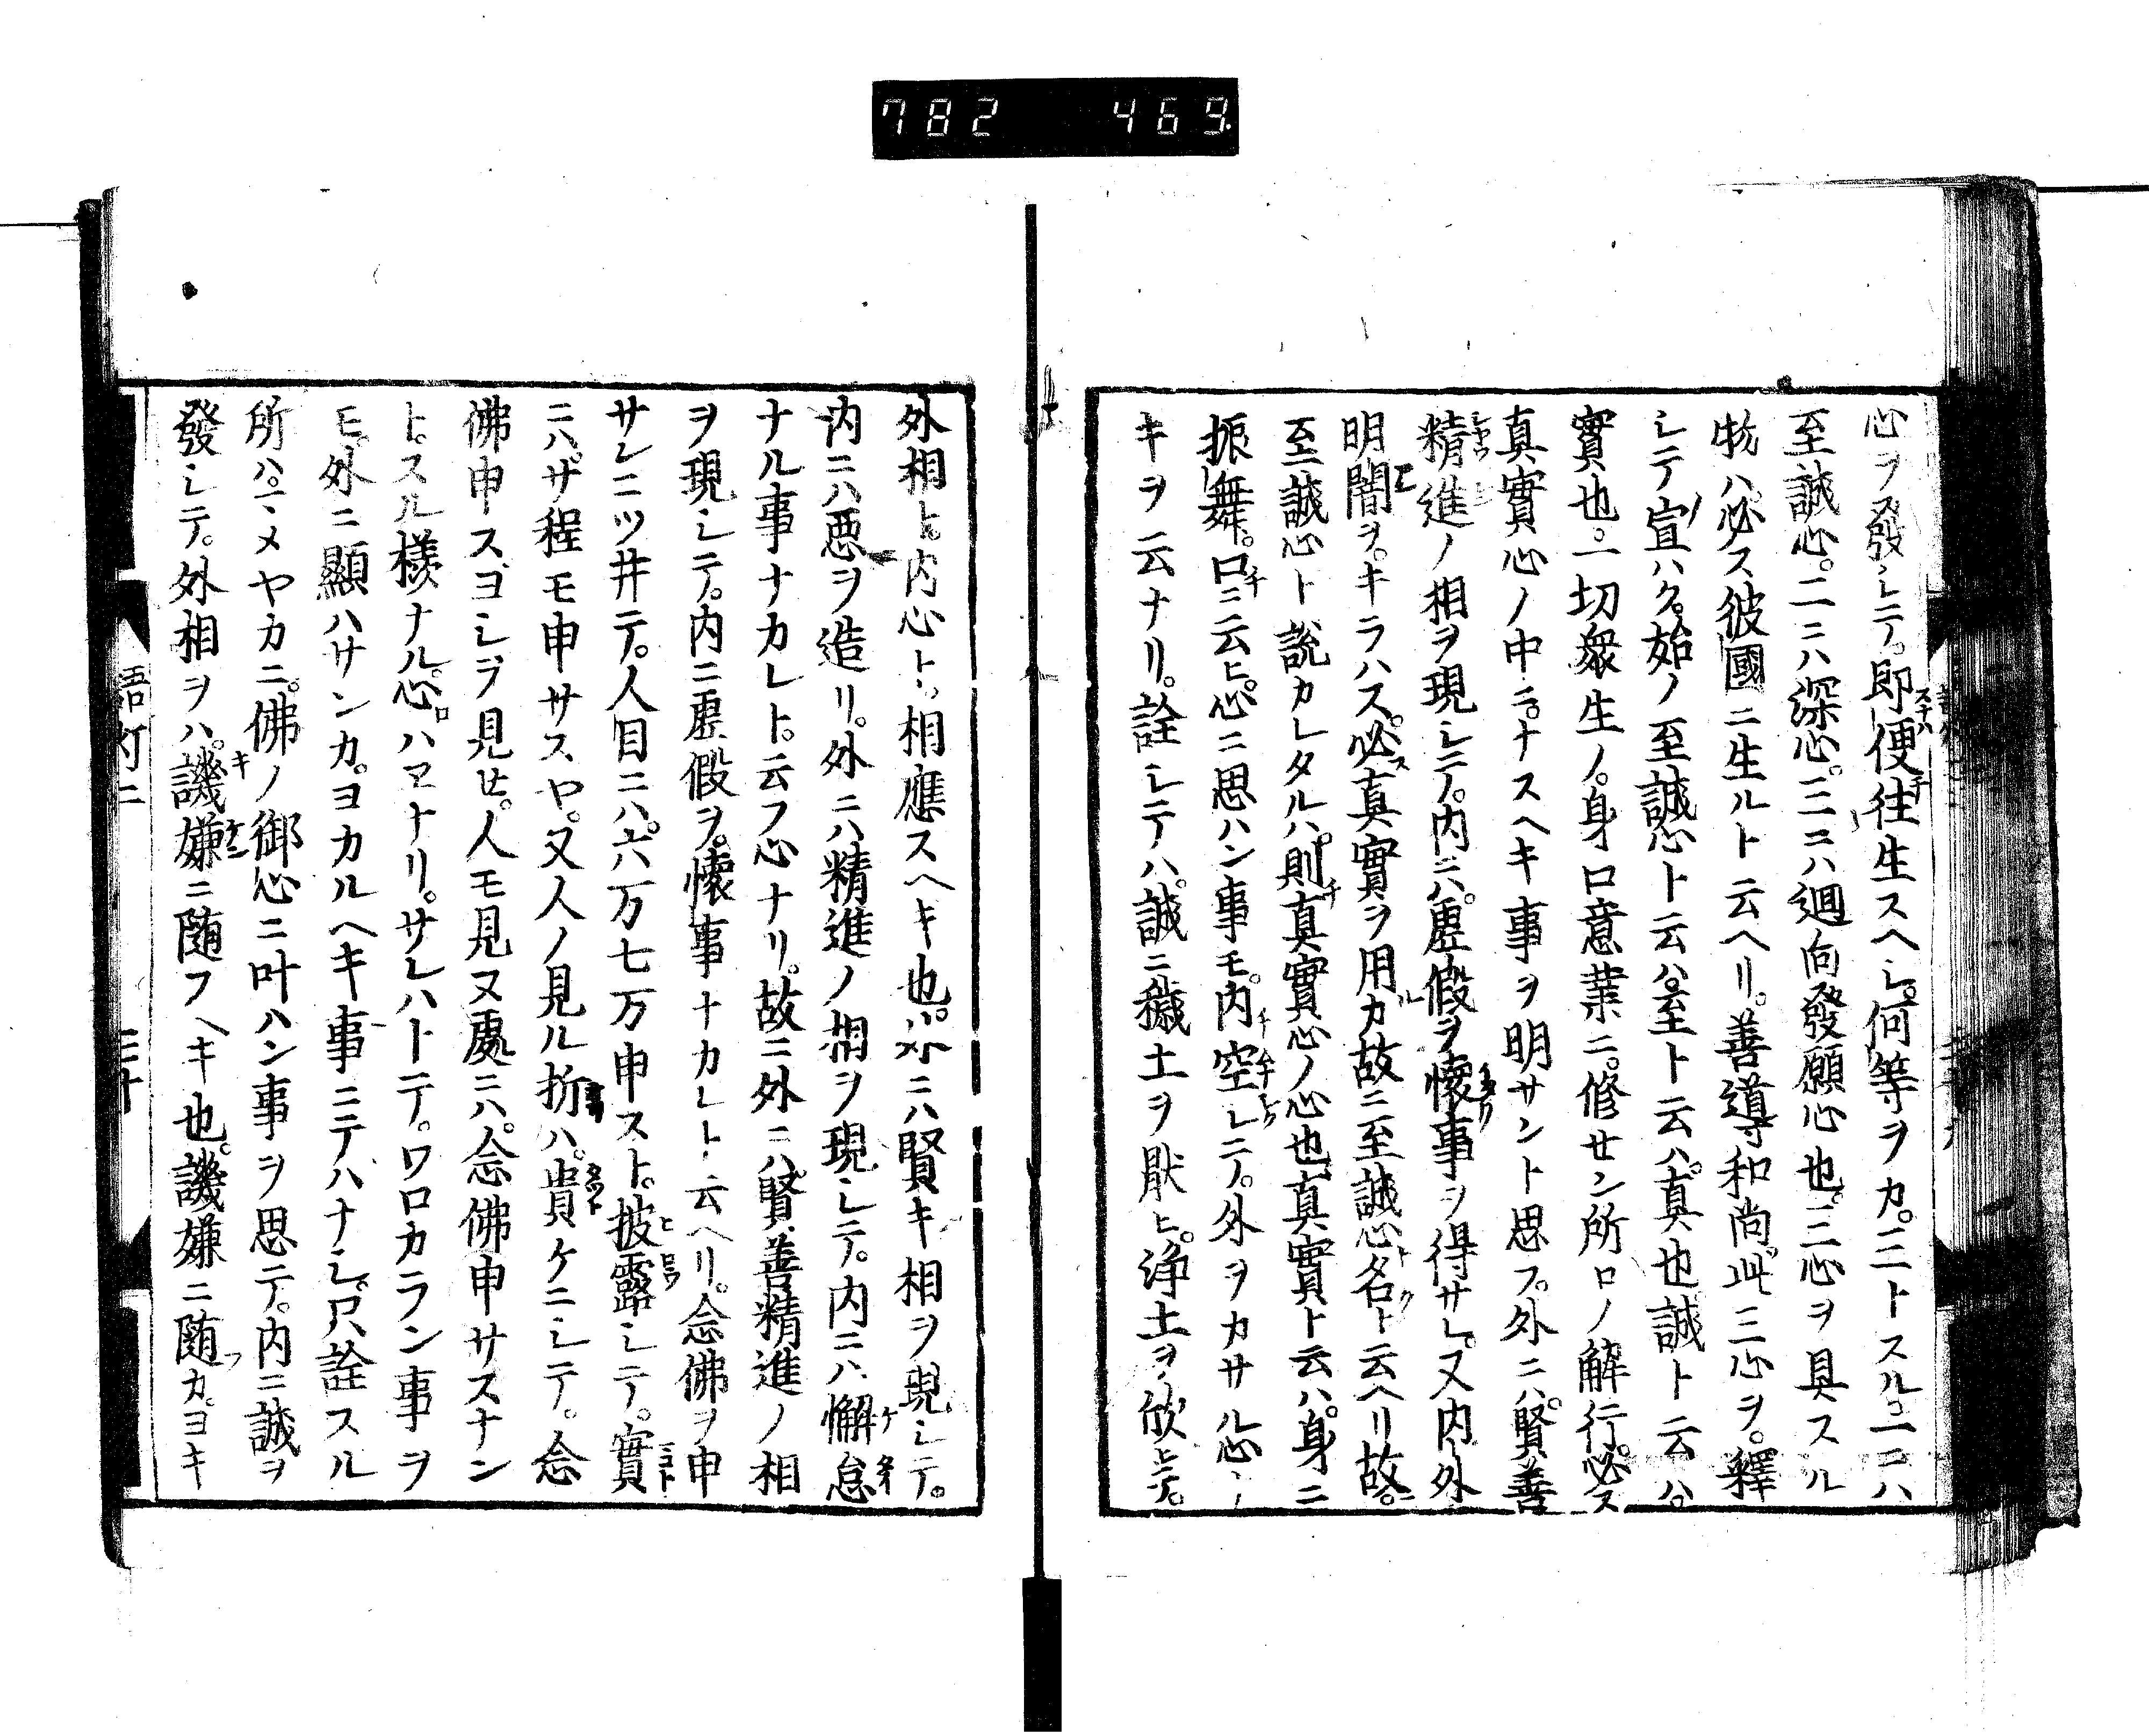 782 469
心ヲ發シテ。即便往生スヘシ。何等ヲカ。三トスル。一ニハ
至誠心。二ニハ深心。三ニハ廻向發願心也。三心ヲ具スル
物ハ。必ス彼國ニ生ルト云ヘリ。善導和尚。此三心ヲ。釋
シテ宣ハク。始ノ至誠心ト云ハ。至ト云ハ。真也。誠ト云ハ。
實也。一切衆生ノ。身口意業ニ。修セン所ロノ解行。必ス
真實心ノ中ニ。ナスヘキ事ヲ明サント思フ。外ニハ。賢善
精進ノ相ヲ現シテ。内ニハ。虚假ヲ懷事ヲ得サレ。又内外
明闇ヲ。キラハス。必真實ヲ用カ故ニ至誠心名ト云ヘリ故。ニ
至誠心ト説カレタルハ。則真實心ノ心也。真實ト云ハ。身ニ
振舞。口ニ云ヒ。心ニ思ハン事モ。内空シテ。外ヲカサル心ノ
キヲ云ナリ。詮シテハ。誠ニ穢土ヲ猒ヒ。浄土ヲ欣ヒテ。
外相ト。内心ト。相應スヘキ也。外ニハ賢キ相ヲ現シテ。
内ニハ悪ヲ造リ。外ニハ精進ノ相ヲ現シテ。内ニハ懈怠
ナル事ナカレト。云フ心ナリ。故ニ外ニハ。賢善精進ノ相
ヲ現シテ。内ニ虚假ヲ。懷事ナカレト云ヘリ。念佛ヲ申
サレニツ井テ。人目ニハ。六万七万申スト。披露シテ。實
ニハ。サ程モ申サスヤ。又人ノ見ル折ハ。貴ケニシテ。念
佛申スヨシヲ見セ。人モ見ヌ處ニハ。念佛申サスナン
ト。スル様ナル心ハヱナリ。サレハトテ。ワロカラン事ヲ
モ。外ニ顯ハサンカ。ヨカルヘキ事ニテハナシ。只詮スル
所ハ。マメヤカニ。佛ノ御心ニ叶ハン事ヲ思テ。内ニ誠ヲ
發シテ。外相ヲハ。譏嫌ニ随フヘキ也。譏嫌ニ随カ。ヨキ
語灯二 三十